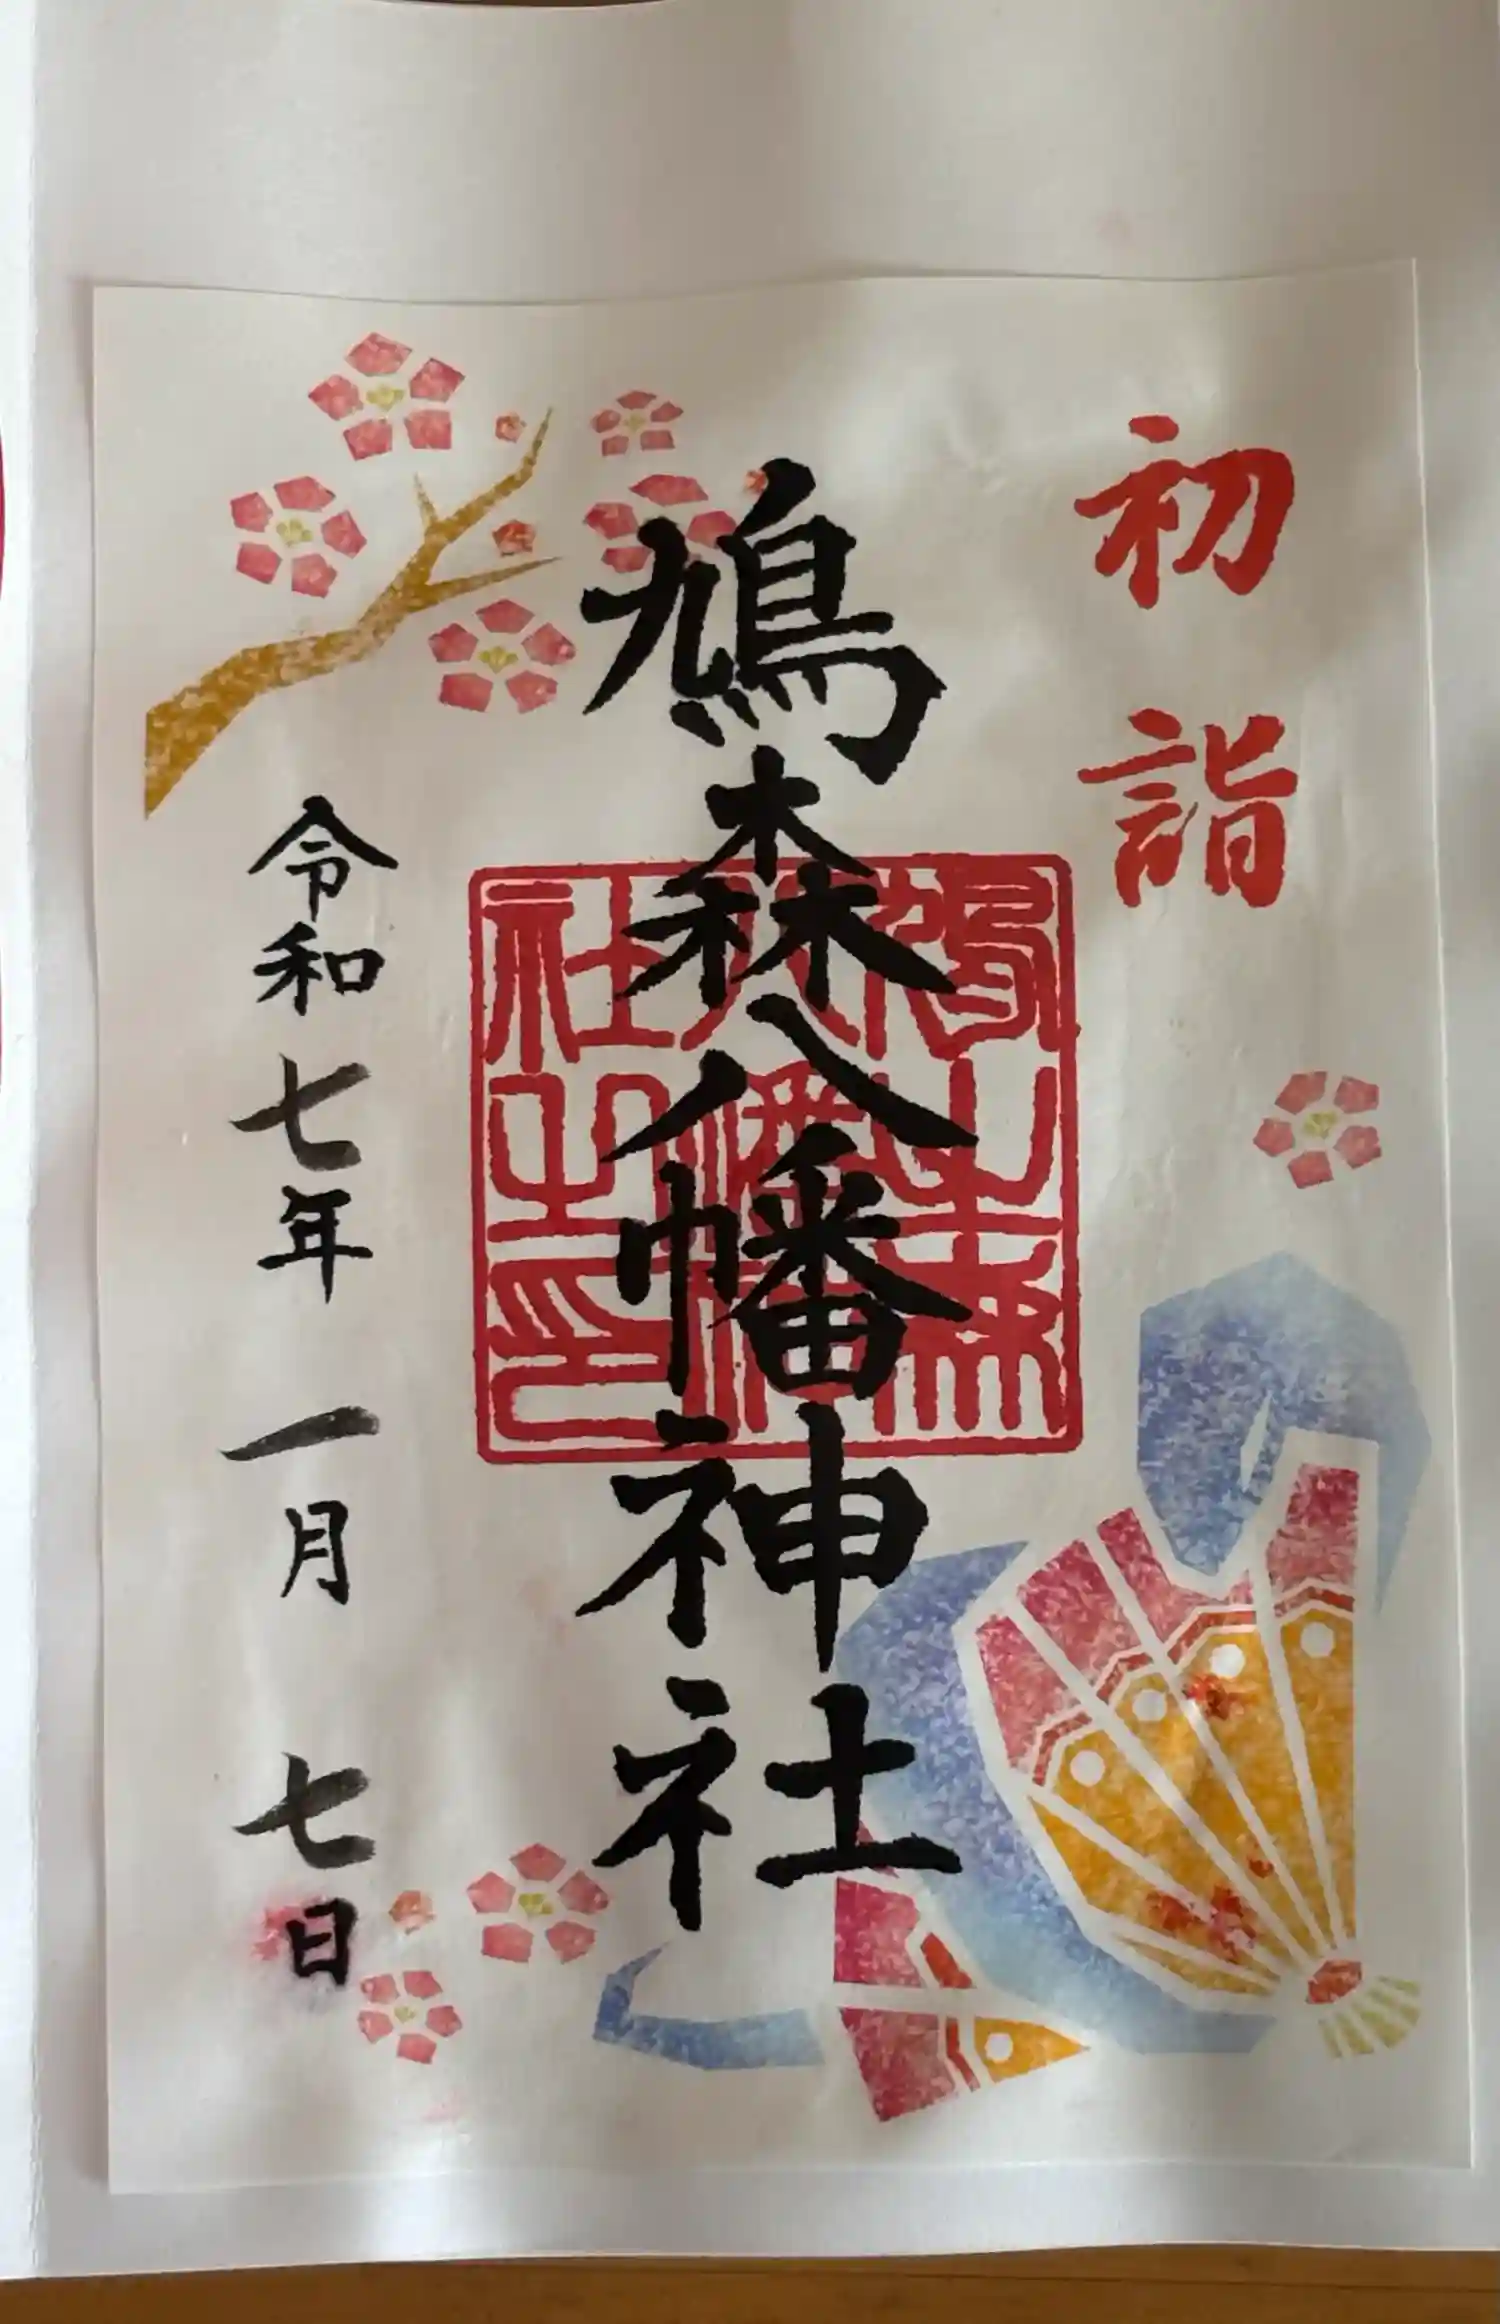 初詣
鳩森八幡神社
鳩山森八幡神社之印
令和七年一月七日